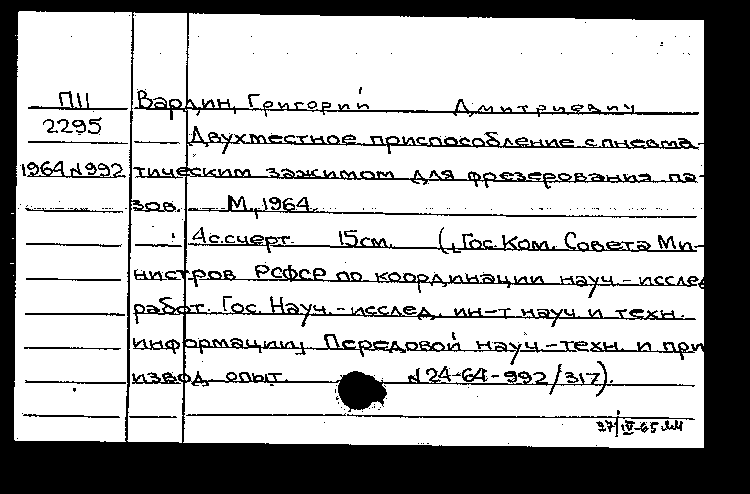 П11 Вардин, Григорий Дмитриевич
2295 Двухместное приспособление с пневма-
1964 N992 тическим зажимом для фрезерования па-
зов. М., 1964.
4с.счерт. 15см. (Гос. Ком. Совета Ми-
нистров РСФСР по координации науч.-исслед
работ. Гос. Науч.-исслед. ин-т науч. и техн.
информации, Передовой науч.-техн. и при
извод. опыт. N24-64-992/317).
27/IV-65